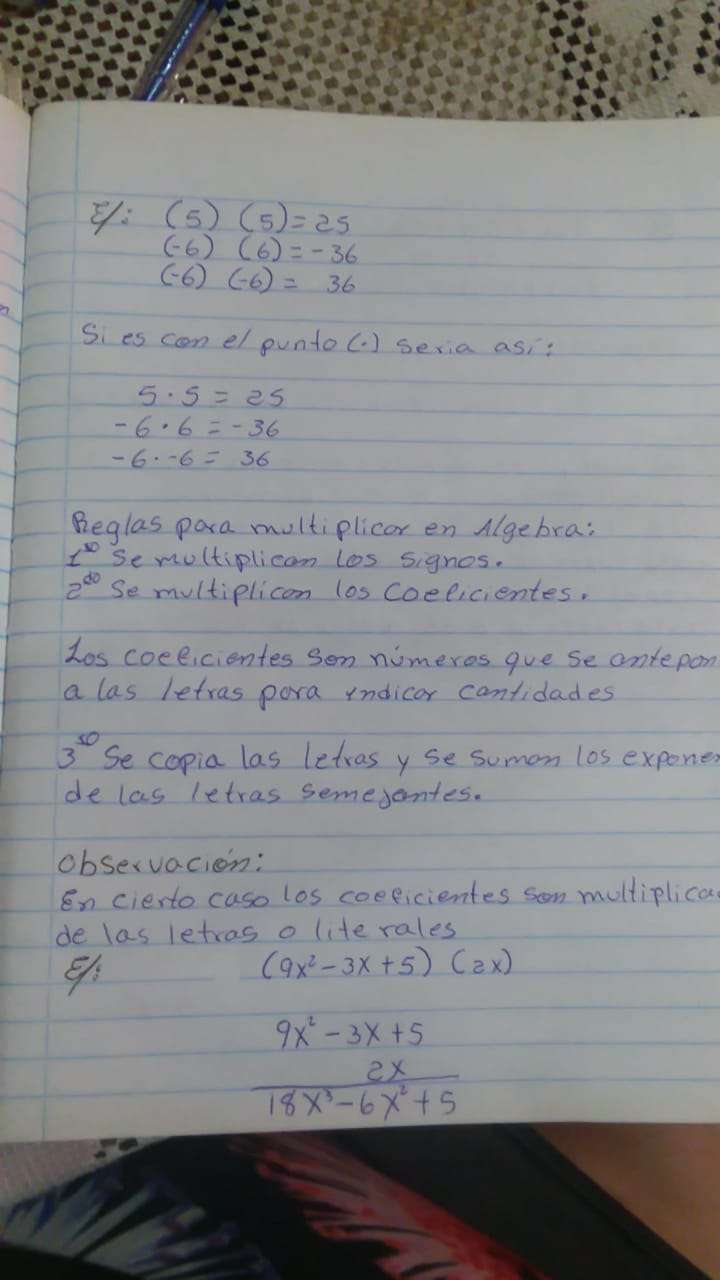 E/: (5) (5)=25
(-6) (6)=-36
(-6) (-6)= 36
Si es con el punto (·) seria así:
5·5=25
-6·6=-36
-6·-6= 36
Reglas para multiplicar en Algebra:
1ro Se multiplican los signos.
2do Se multiplican los Coeficientes.
Los coeficientes son números que se antepon
a las letras para indicar cantidades
3ro Se copia las letras y se suman los exponen
de las letras semejantes.
Observación:
En cierto caso los coeficientes son multiplica
de las letras o literales
E/: (9x²-3x+5) (2x)
9x²-3x+5
2x
18x³-6x²+5